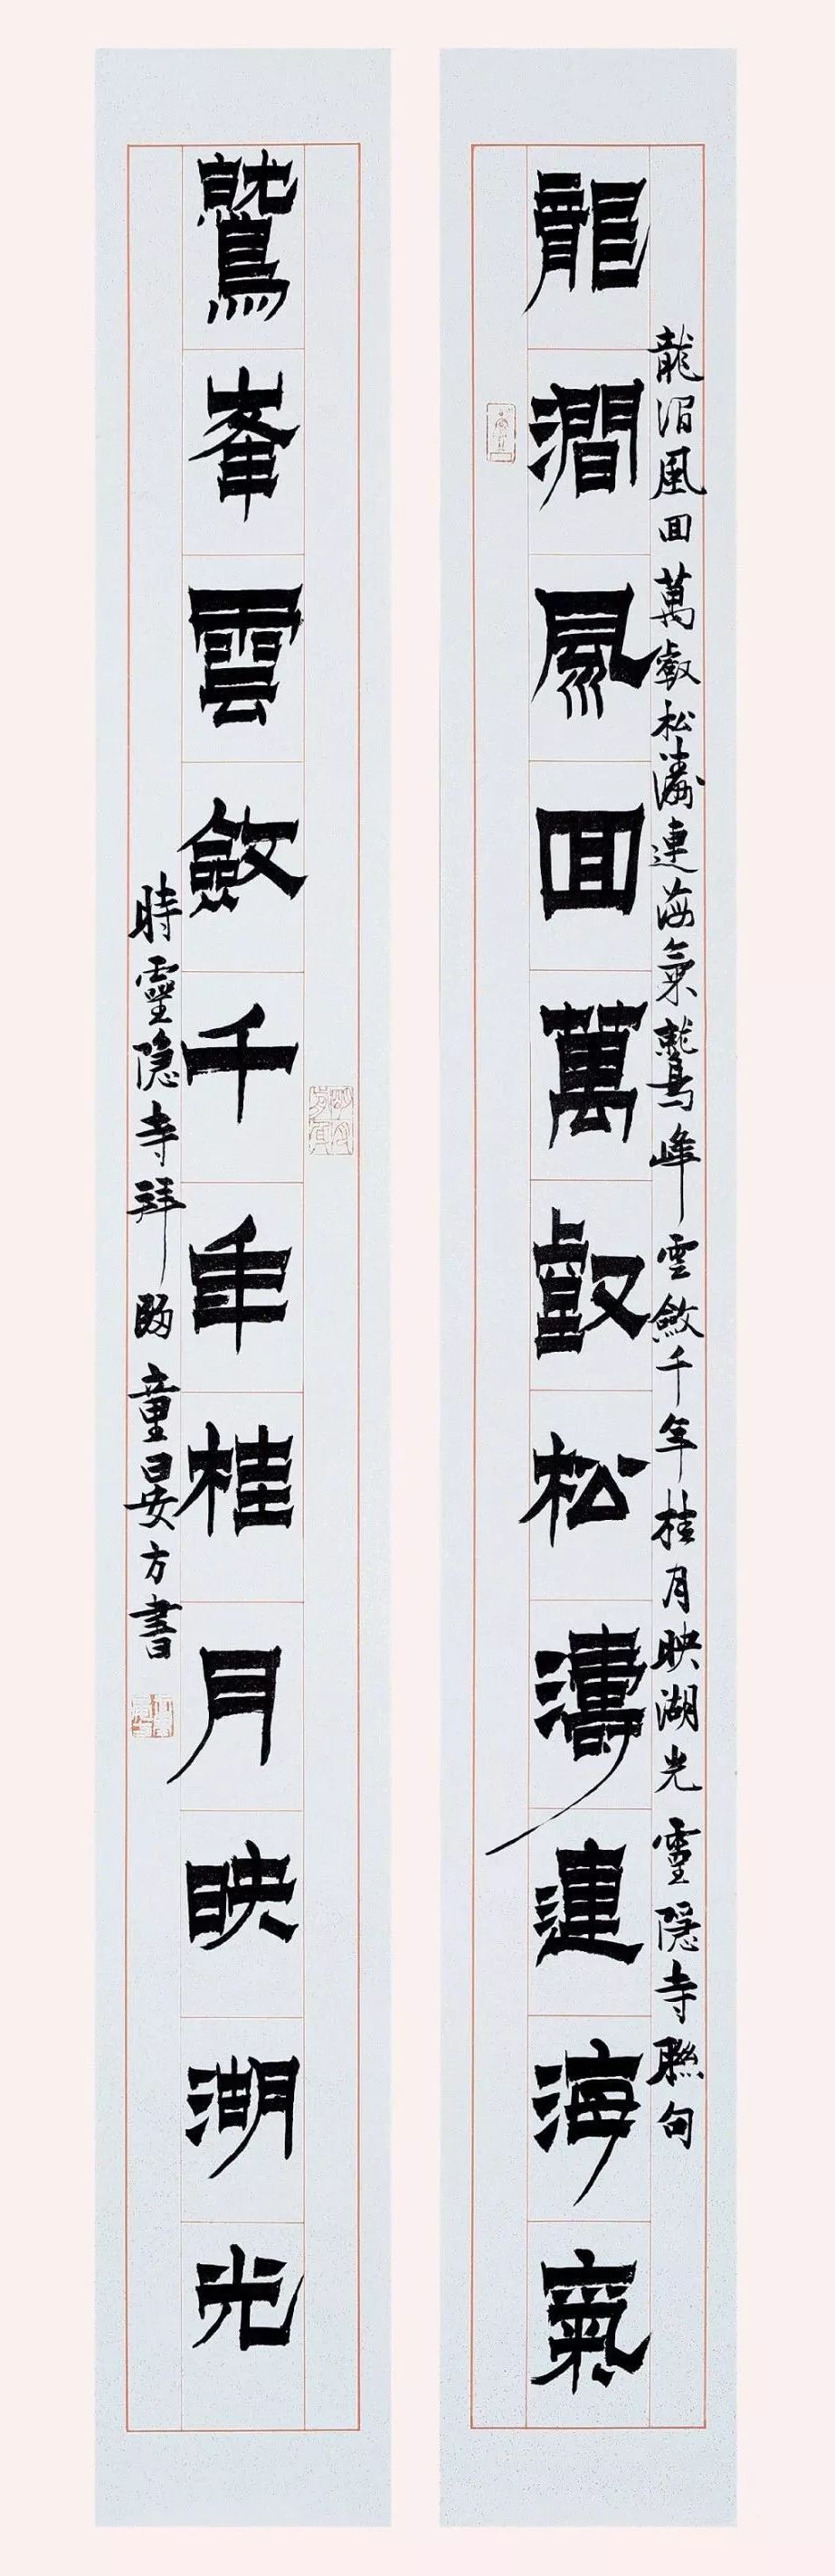 龍澗風回萬壑松濤連海氣
龍澗風回萬壑松濤連海氣鷲峰雲斂千年桂月映湖光 靈隱寺聯句
鷲峯雲斂千年桂月映湖光
時靈隱寺拜
童晏方書